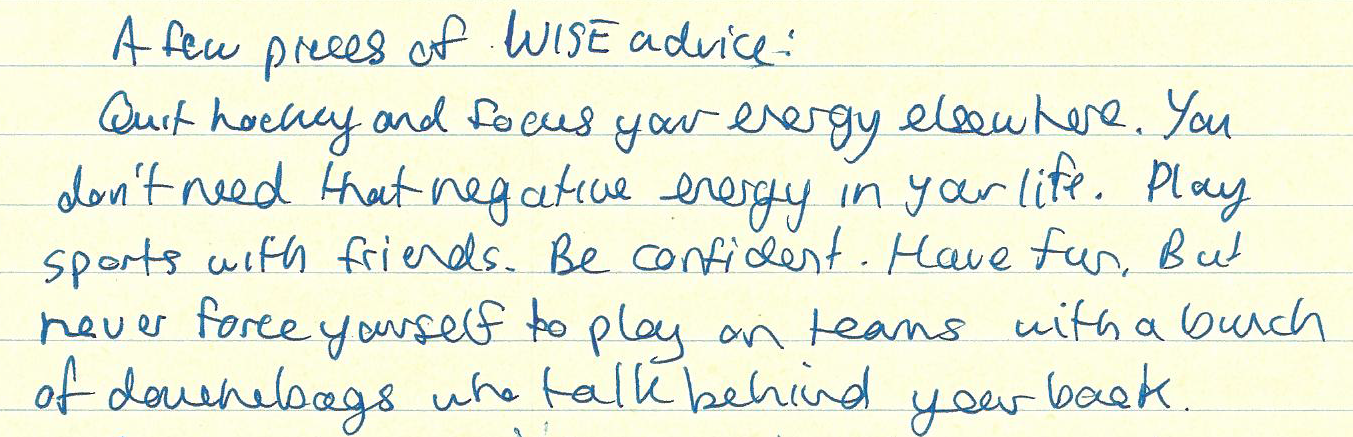 A few pieces of WISE advice:
Quit hockey and focus your energy elsewhere. You
don't need that negative energy in your life. Play
sports with friends. Be confident. Have fun. But
never force yourself to play on teams with a bunch
of douchebags who talk behind your back.